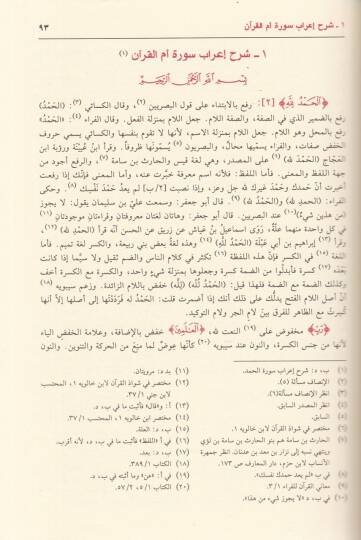 ١ ـ شرح إعراب سورة أم القرآن
٩٣
١ ـ شرح إعراب سورة أم القرآن (١)
بسم الله الرحمن الرحيم
﴿الْحَمْدُ لِلَّهِ﴾ [٢]: رفع بالابتداء على قول البصريين (٢)، وقال الكسائي (٣): «الحَمْدُ»
رفع بالضمير الذي في الصفة، والصفة اللام. جعل اللام بمنزلة الفعل. وقال الفراء (٤): «الحمدُ»
رفع بالمحل وهو اللام. جعل اللام بمنزلة الاسم، لأنها لا تقوم بنفسها والكسائي يسمي حروف
الخفض صفات، والفراء يسمّيها محالّ، والبصريون (٥) يسمّونها ظروفاً. وقرأ ابن عُيَيْنَة ورؤبة ابن
العجّاج (الحمدَ لله) (٦) على المصدر، وهي لغة قيس والحارث بن سامة (٧)، والرفع أجود من
جهة اللفظ والمعنى. فأما اللفظ: فلأنه اسم معرفة خبّرت عنه، وأما المعنى فإنّك إذا رفعت
أخبرت أنّ حمدك وحَمْدَ غيرك لله جل وعز، وإذا نصبت [٢/ب] لم يعدُ حَمْدَ نفسك (٨). وحكى
الفراء: (الحمدِ لله) و(الحمدُ لُله) (٩). قال أبو جعفر: وسمعت عليّ بن سليمان يقول: لا يجوز
(من هذين شيء) (١٠) عند البصريين. قال أبو جعفر: وهاتان لغتان معروفتان وقراءتان موجودتان (١١)
في كل واحدة منهما علّة. رَوَى إسماعيل بنُ عيّاش عن زريق عن الحسن أنّه قرأ (الحمدِ لله) (١٢)
وقرأ (١٣) إبراهيم بن أبي عَبْلَة (الحمدُ لُلهِ) (١٤) وهذه لغةُ بعض بني ربيعة، والكسر لغة تميم. فأما
اللغة (١٥) في الكسر فإنّ هذه اللفظة (١٦) تكثر في كلام الناس والضم ثقيل ولا سيّما إذا كانت
بعده (١٧) كسرة فأبدلُوا من الضمة كسرة وجعلوها بمنزلة شيء واحد، والكسرة مع الكسرة أخف
وكذلك الضمة مع الضمة فلهذا قيل: (الحمدُ لُله) (لله) خفض باللام الزائدة. وزعم سيبويه (١٨)
أنّ أصل اللام الفتح يدلّك على ذلك أنك إذا أضمرت قلت: الحمدُ لَه فرَدَدْتَها إلى أصلها إلّا أنها
كُسِرَتْ مع الظاهر للفرق بينَ لامِ الجر ولام التوكيد.
﴿رَبِّ﴾ مخفوض على (١٩) النعت لله، ﴿الْعَالَمِينَ﴾ خفض بالإضافة، وعلامة الخفض الياء
لأنها من جنس الكسرة، والنون عند سيبويه (٢٠) كأنّها عِوضٌ لما مُنِعَ من الحركة والتنوين. والنون
(١) ب، د: شرح إعراب سورة الحمد.
(٢) الإنصاف مسألة (٥).
(٣) انظر الإنصاف مسألة (٦).
(٤) انظر المصدر السابق.
(٥) السابق.
(٦) مختصر في شواذ القرآن لابن خالويه ١.
(٧) الحارث بن سامة هم بنو الحارث بن سامة بن لؤي
وينتهي نسبه إلى نزار بن معد بن عدنان. انظر جمهرة
الأنساب لابن حزم، دار المعارف ص ١٧٣.
(٨) في ب «لم يعد حمدك نفسك».
(٩) معاني القرآن للفراء ٣/١.
(١٠) في ب، د «لا يجوز شيء من هذا».
(١١) ب، د: مرويتان.
(١٢) مختصر في شواذ القرآن لابن خالويه ١، المحتسب
لابن جني ٣٧/١.
(١٣) أ: «وقال» فأثبت ما في ب، د.
(١٤) مختصر ابن خالويه ١، المحتسب ٣٧/١.
(١٥) ب، د: العلة.
(١٦) في أ «اللفظ» فأثبت ما في ب، د، لأنه أقرب.
(١٧) ب، د: بعد.
(١٨) الكتاب ٣٨٩/١.
(١٩) في أ: «عن» وما أثبته في ب، د.
(٢٠) الكتاب ٥/١، ٥٧/٢.